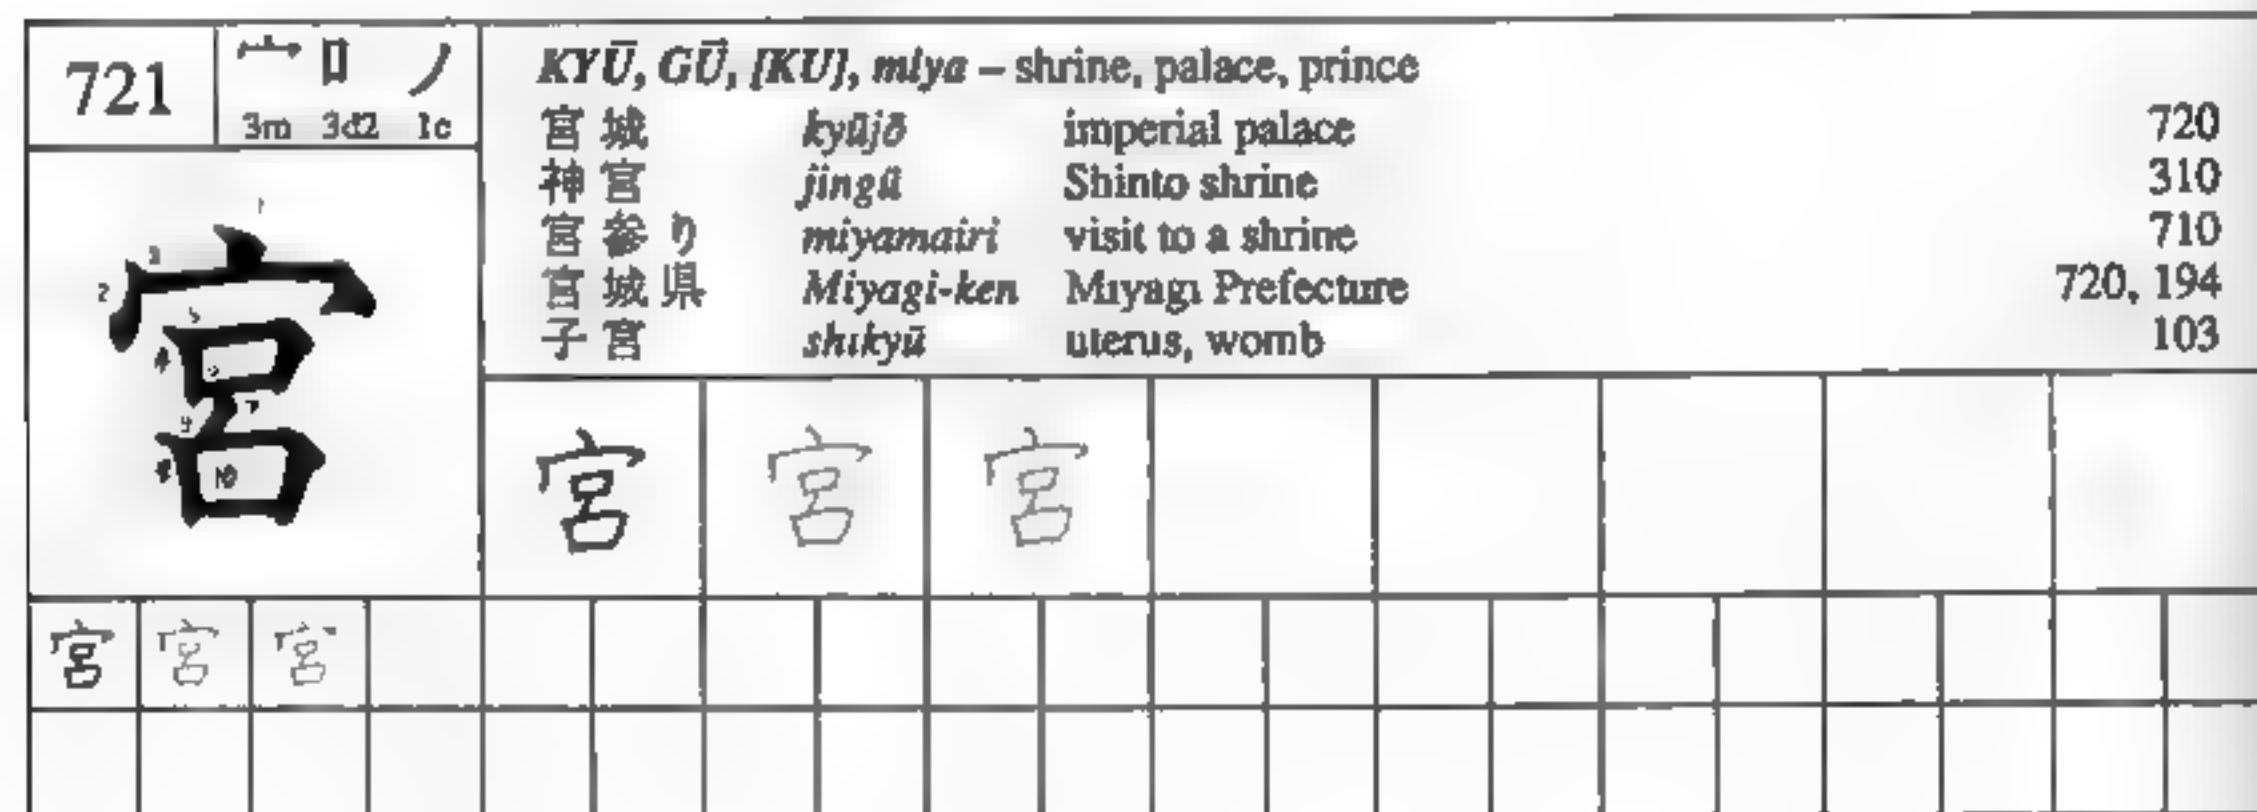 721
宀 口 ノ
3m 3d2 1c
KYŪ, GŪ, [KU], miya – shrine, palace, prince
宮城 kyūjō imperial palace 720
神宮 jingū Shinto shrine 310
宮参り miyamairi visit to a shrine 710
宮城県 Miyagi-ken Miyagi Prefecture 720, 194
子宮 shikyū uterus, womb 103
宮
1 2 3 4 5 6 7 8 9 10
宮 宮 宮
宮 宮 宮